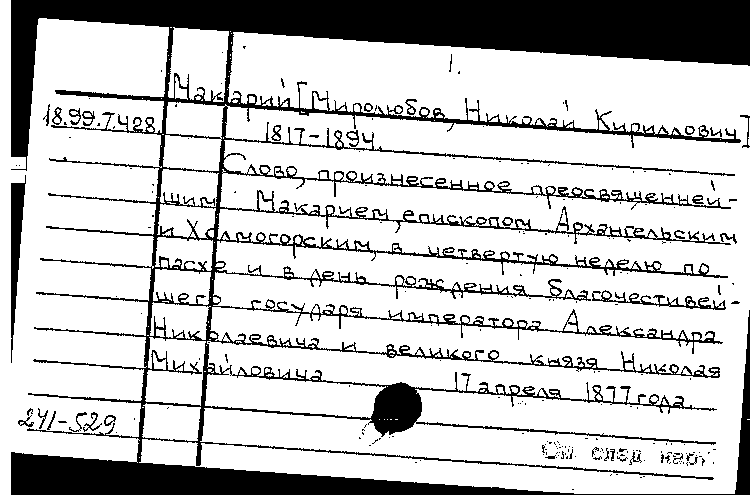 1.
Макарий [Миролюбов, Николай Кириллович]
18.99.7.428. 1817-1894.
Слово, произнесенное преосвященней-
шим Макарием, епископом Архангельским
и Холмогорским, в четвертую неделю по
пасхе и в день рождения благочестивей-
шего государя императора Александра
Николаевича и великого князя Николая
Михайловича 17 апреля 1877 года.
241-529
См след карт.